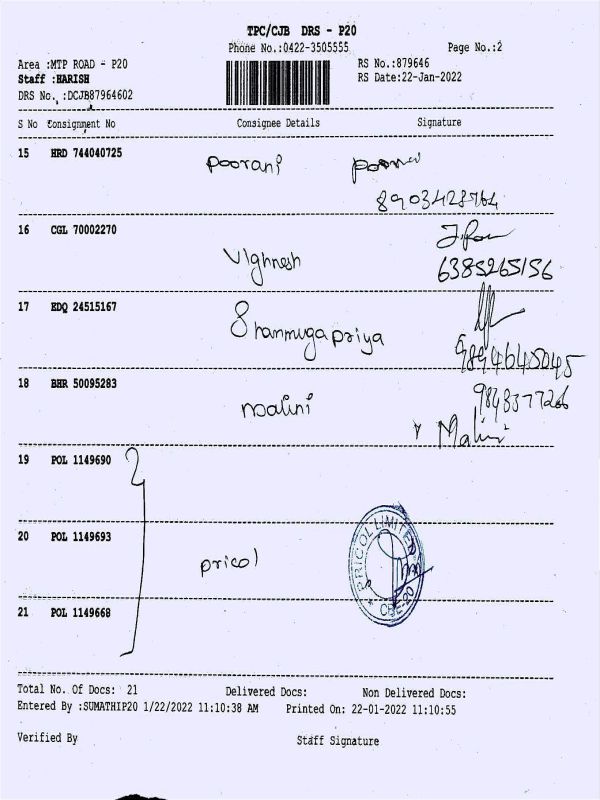 TPC/CJB DRS - P20
Phone No.:0422-3505555 Page No.:2
Area :MTP ROAD - P20 RS No.:879646
Staff :HARISH RS Date:22-Jan-2022
DRS No. :DCJB87964602
S No Consignment No Consignee Details Signature
15 HRD 744040725 Poorani
8903428764
16 CGL 70002270 Vighnesh
6385265156
17 EDQ 24515167 Shanmugapriya
9894645045
18 BHR 50095283 Malini 9843377266
Malini
19 POL 1149690
20 POL 1149693 pricol PRICOL LIMITED
21 POL 1149668
Total No. Of Docs: 21 Delivered Docs: Non Delivered Docs:
Entered By :SUMATHIP20 1/22/2022 11:10:38 AM Printed On: 22-01-2022 11:10:55
Verified By Staff Signature